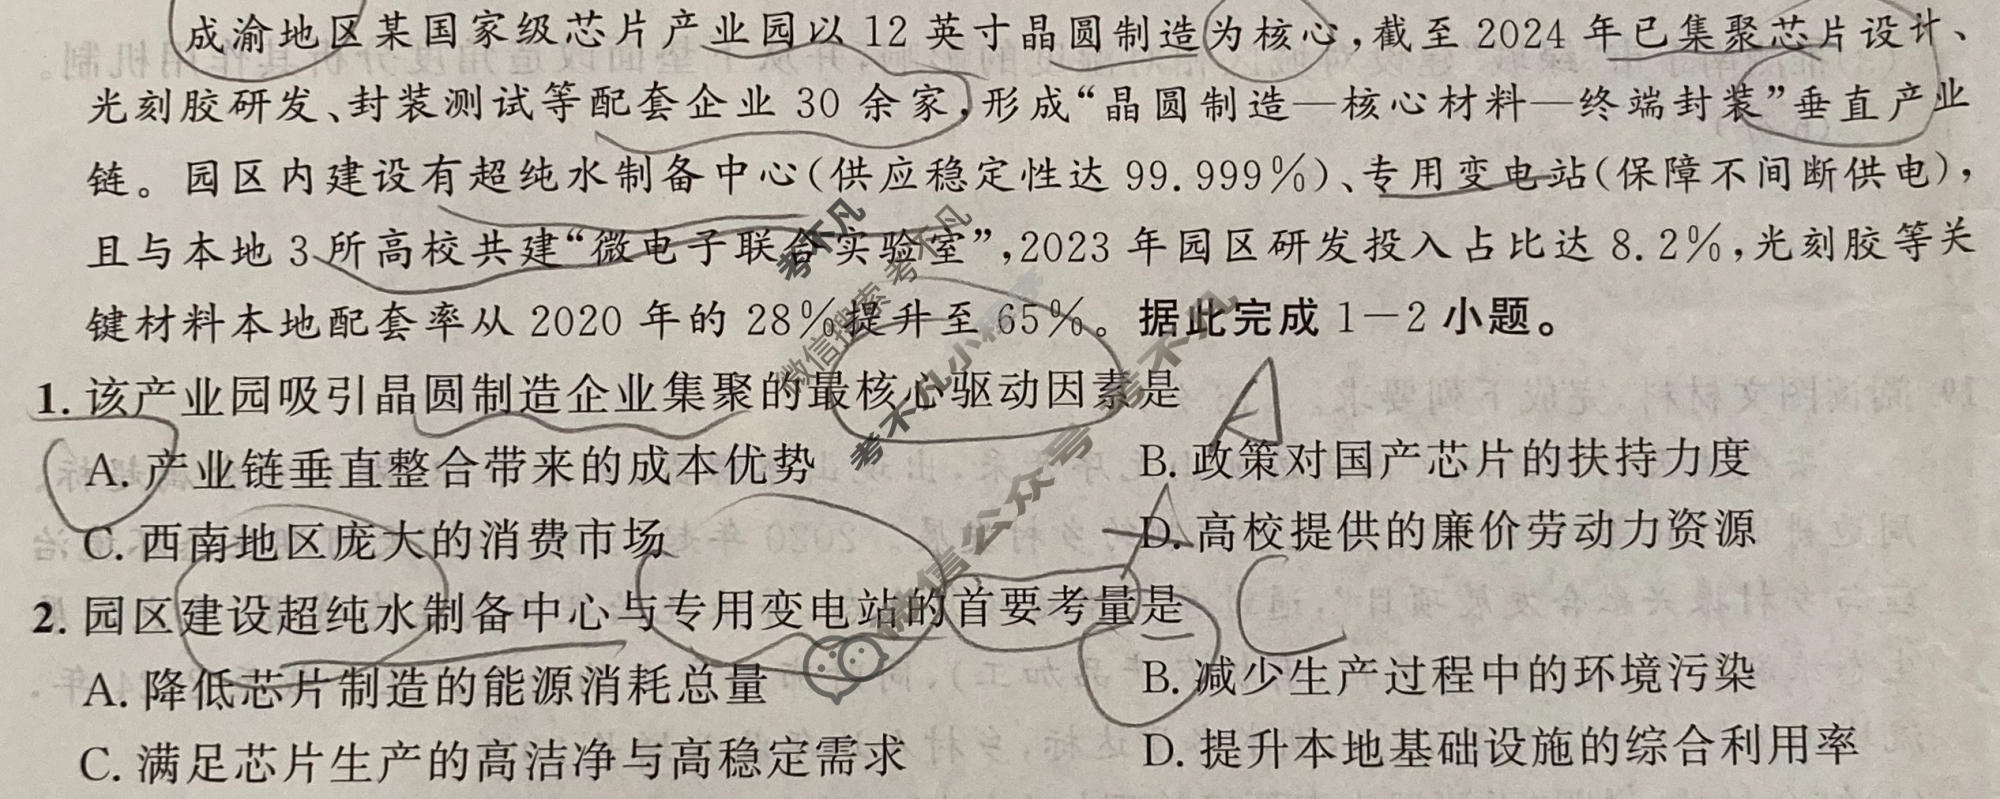 成渝地区某国家级芯片产业园以 12 英寸晶圆制造为核心,截至 2024 年已集聚芯片设计、
光刻胶研发、封装测试等配套企业 30 余家,形成“晶圆制造—核心材料—终端封装”垂直产业
链。园区内建设有超纯水制备中心(供应稳定性达 99.999%)、专用变电站(保障不间断供电),
且与本地 3 所高校共建“微电子联合实验室”,2023 年园区研发投入占比达 8.2%,光刻胶等关
键材料本地配套率从 2020 年的 28%提升至 65%。据此完成 1—2 小题。
1. 该产业园吸引晶圆制造企业集聚的最核心驱动因素是 A
A. 产业链垂直整合带来的成本优势 B. 政策对国产芯片的扶持力度
C. 西南地区庞大的消费市场 D. 高校提供的廉价劳动力资源
2. 园区建设超纯水制备中心与专用变电站的首要考量是 C
A. 降低芯片制造的能源消耗总量 B. 减少生产过程中的环境污染
C. 满足芯片生产的高洁净与高稳定需求 D. 提升本地基础设施的综合利用率
考不凡
微信搜索 考不凡
考不凡小程序
微信公众号 考不凡